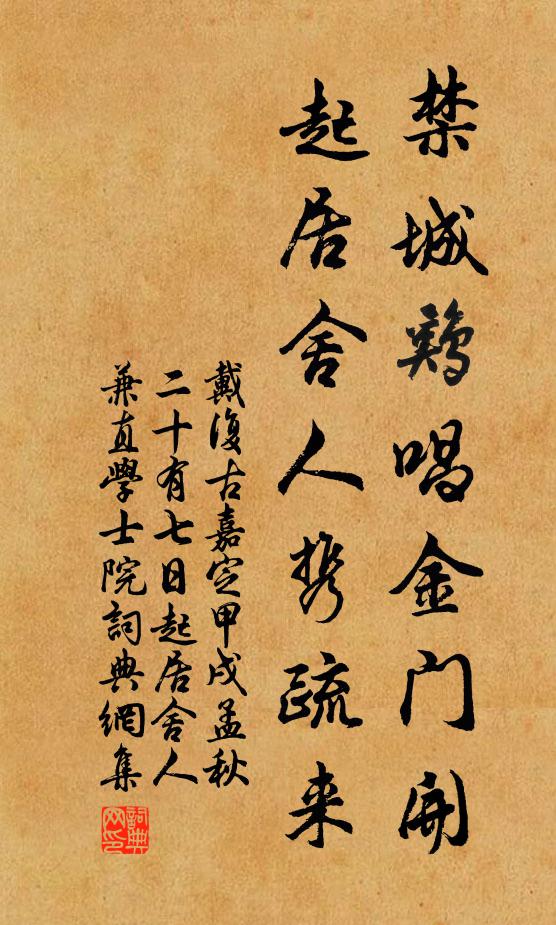 禁城鷄唱金门開
起居舍人携疏来
戴復古嘉定甲戌孟秋
二十有七日起居舍人
兼直學士院詞典網集
詞典网印